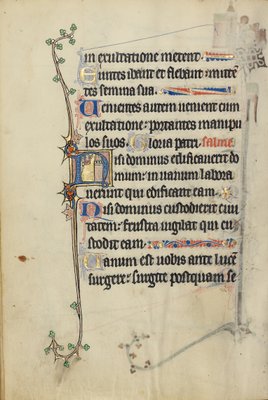 in exultatione metent.
Euntes ibant et flebant: mitten
tes semina sua.
Uenientes autem uenient cum
exultatione: portantes manipu
los suos. Gloria patri. psalmus
Nisi dominus edificauerit do
mum: in uanum labora
uerunt qui edificant eam.
Nisi dominus custodierit ciui
tatem: frustra uigilat qui cus
todit eam.
Uanum est uobis ante lucem
surgere: surgite postquam se